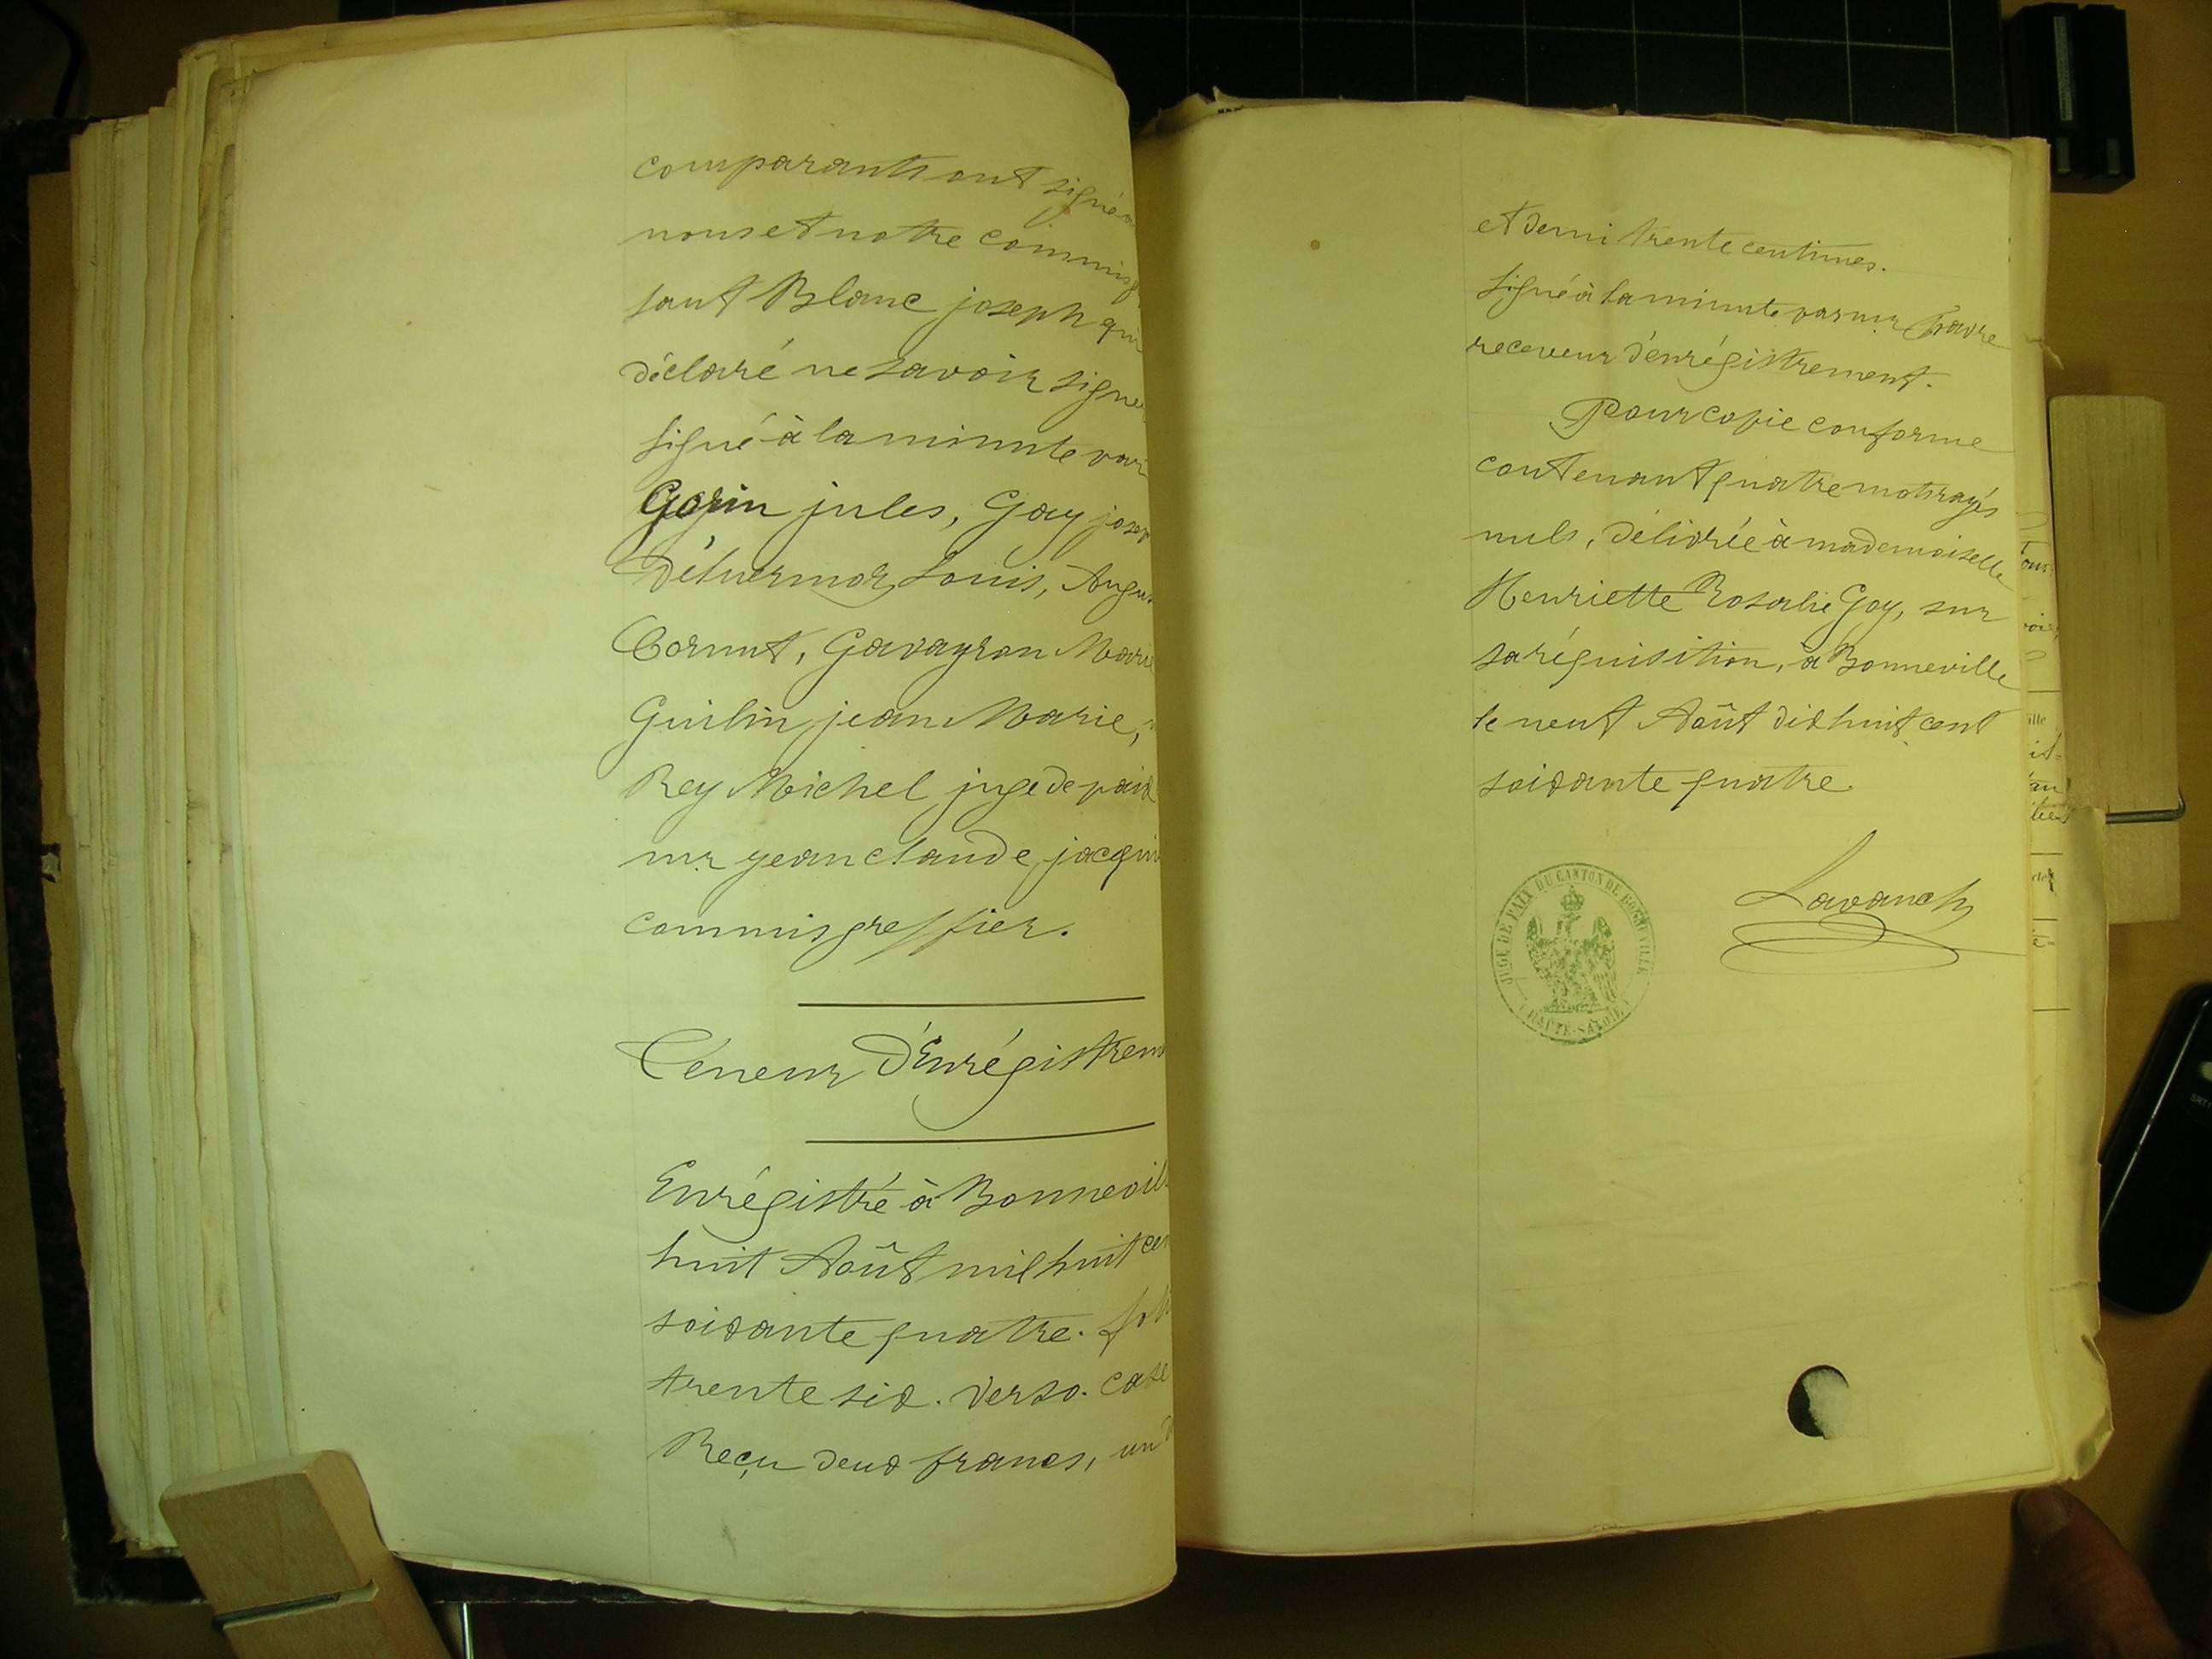 comparants ont signé a
nous et notre commis g
sauf Blanc joseph qui
déclaré ne savoir signe
signé à la minute par
Gorin jules, Gay josep
Déluermoz Louis, Augus
Cornut, Gavayron Marie
Guilin jean Marie,
Rey Michel juge de paix
mr jean claude, jacqui
commis greffier.
Téneur d'Enrégistrem
Enrégistré à Bonnevill
huit Août mil huit cen
soixante quatre. fol
trente six. Verso. case
Reçu deux francs, un d
et demi trente centimes.
signé à la minute par mr Favre
receveur d'enrégistrement.
Pour copie conforme
contenant quatre mots rayés
nuls, délivrée à mademoiselle
Henriette Rosalie Gay, sur
sa réquisition, à Bonneville
le neuf Août dix huit cent
soixante quatre
Lavanch
JUGE DE PAIX DU CANTON DE BONNEVILLE
(HAUTE-SAVOIE)